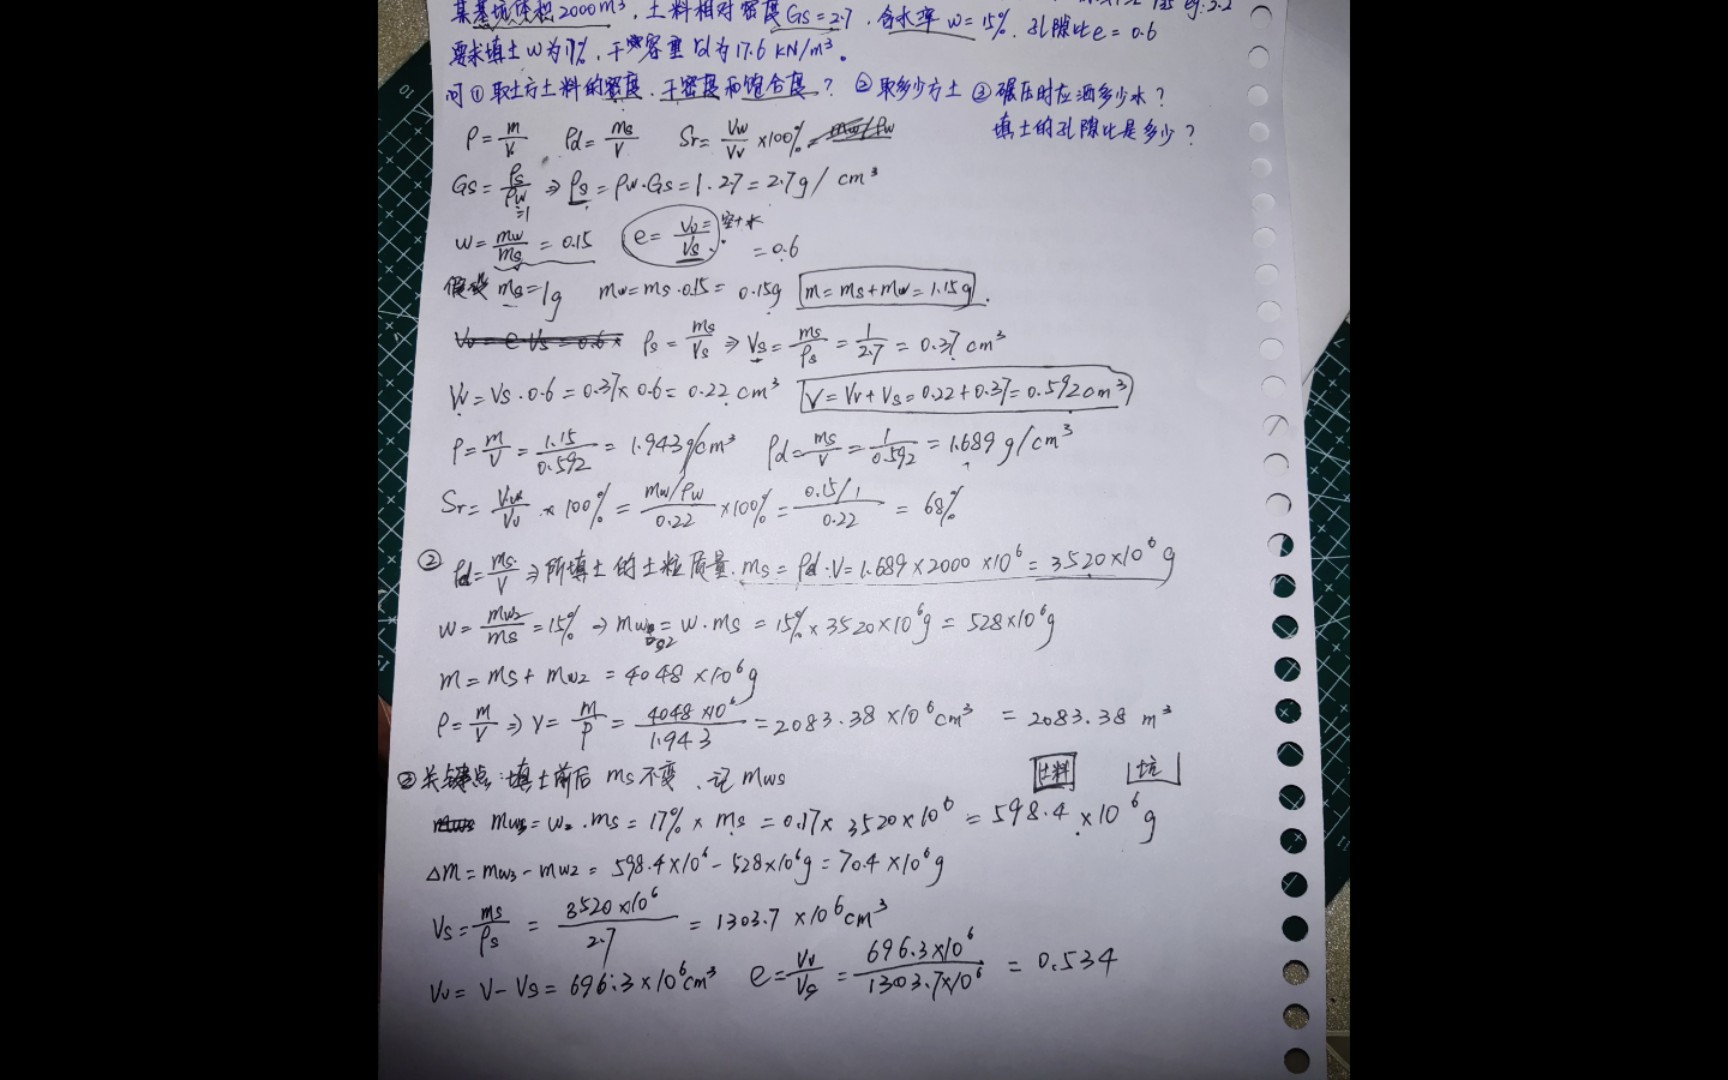 某基坑体积2000m³，土料相对密度Gs=2.7，含水率w=15%，孔隙比e=0.6
要求填土w为17%，干容重γd为17.6 kN/m³。
问①取土方土料的密度、干密度和饱合度？ ②取多少方土 ③碾压时应洒多少水？
填土的孔隙比是多少？
ρ=m/V ρd=ms/V Sr=Vw/Vv×100%
Gs=ρs/ρw ⇒ ρs=ρw·Gs=1·2.7=2.7g/cm³
=1
w=mw/ms=0.15 e=Vv/Vs=0.6 空+水
假设ms=1g mw=ms·0.15=0.15g m=ms+mw=1.15g.
Vv=e·Vs=0.6× ρs=ms/Vs ⇒ Vs=ms/ρs=1/2.7=0.37cm³
Vv=Vs·0.6=0.37×0.6=0.22cm³ V=Vv+Vs=0.22+0.37=0.592cm³
ρ=m/V=1.15/0.592=1.943g/cm³ ρd=ms/V=1/0.592=1.689g/cm³
Sr=Vw/Vv×100%=(mw/ρw)/0.22×100%=(0.15/1)/0.22=68%
② ρd=ms/V ⇒所填土的土粒质量.ms=ρd·V=1.689×2000×10⁶=3520×10⁶g
w=mw2/ms=15% ⇒ mw2=w·ms=15%×3520×10⁶g=528×10⁶g
m=ms+mw2=4048×10⁶g
ρ=m/V ⇒ V=m/ρ=4048×10⁶/1.943=2083.38×10⁶cm³=2083.38m³
③关键点:填土前后ms不变、记mws
土料 坑
mw3=w2·ms=17%×ms=0.17×3520×10⁶=598.4×10⁶g
Δm=mw3-mw2=598.4×10⁶-528×10⁶g=70.4×10⁶g
Vs=ms/ρs=3520×10⁶/2.7=1303.7×10⁶cm³
Vv=V-Vs=696.3×10⁶cm³ e=Vv/Vs=696.3×10⁶/1303.7×10⁶=0.534